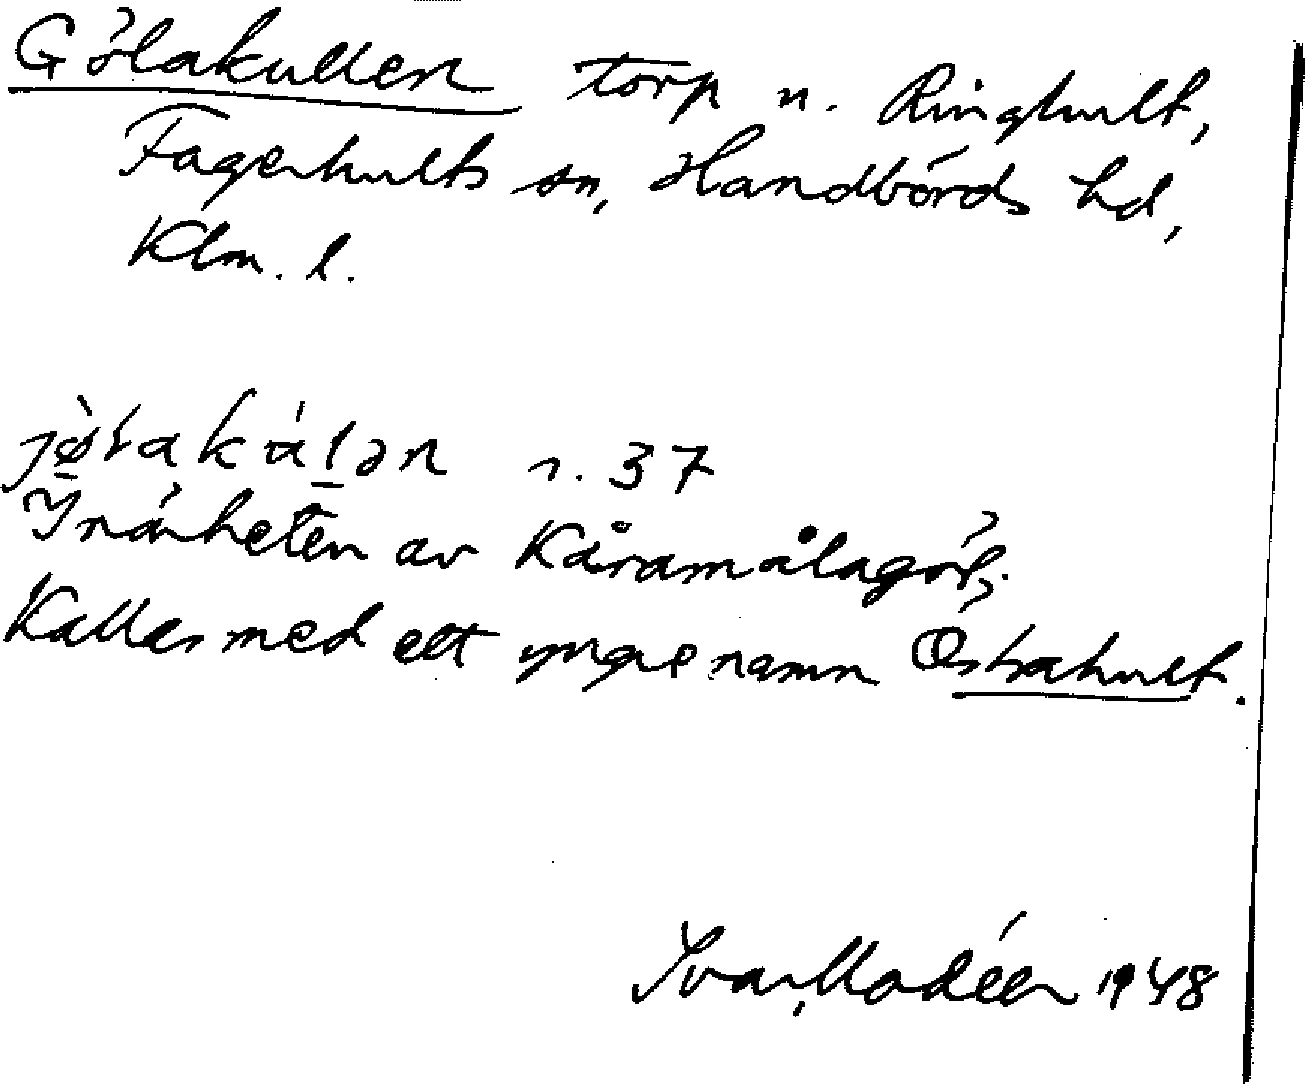 Gölakullen torp u. Ringhult,
Fagerhults sn, Handbörds hd,
Klm. l.
jø̀lakálən r. 37
I närheten av Kåramålagöl,.
Kallas med ett yngre namn Östrahult.
Ivar Modéer 1948